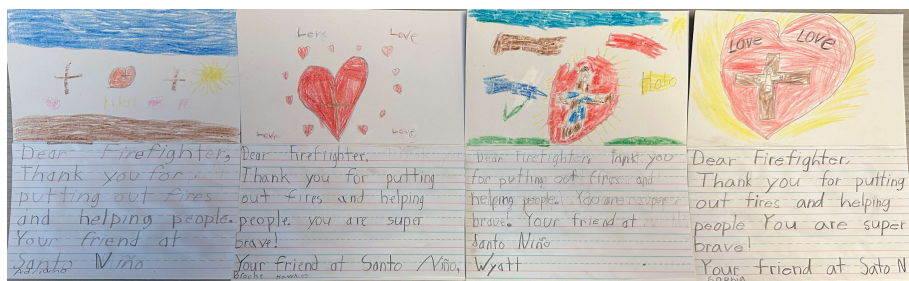 Dear Firefighter,
Thank you for
putting out fires
and helping people.
Your friend at
Santo Niño
Adriano
Love Love
Love Love
Dear Firefighter,
Thank you for putting
out fires and helping
people. you are super
brave!
Your friend at Santo Niño,
Dear Firefighter, Tank you
for putting out fires and
helping people. You are super
brave. Your friend at
Santo Niño
Wyatt
Love Love
Dear Firefighter,
Thank you for putting
out fires and helping
people You are super
brave!
Your friend at Sato N
Sophia